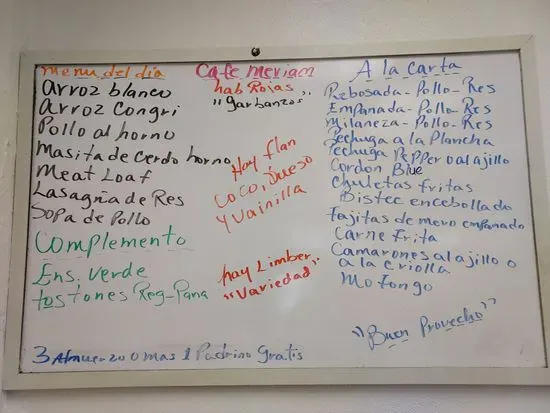 menu del dia
Arroz blanco
Arroz Congri
Pollo al horno
Masita de cerdo horno
Meat Loaf
Lasagña de Res
Sopa de Pollo
Complemento
Ens. Verde
tostones Reg-Pana
3 Almuerzo o mas 1 Padrino Gratis
Cafe meriam
hab Rojas
"garbanzos"
Hay flan
Coco, Queso
y Vainilla
hay Limber,
"Variedad"
A la carta
Rebosada-Pollo-Res
Empanada-Pollo-Res
Milaneza-Pollo-Res
Pechuga a la Plancha
Pechuga Pepper o alajillo
Cordon Blue
Chuletas fritas
Bistec encebollado
fajitas de mero empanado
Carne frita
Camarones alajillo o
a la criolla
Mofongo
"Buen Provecho"